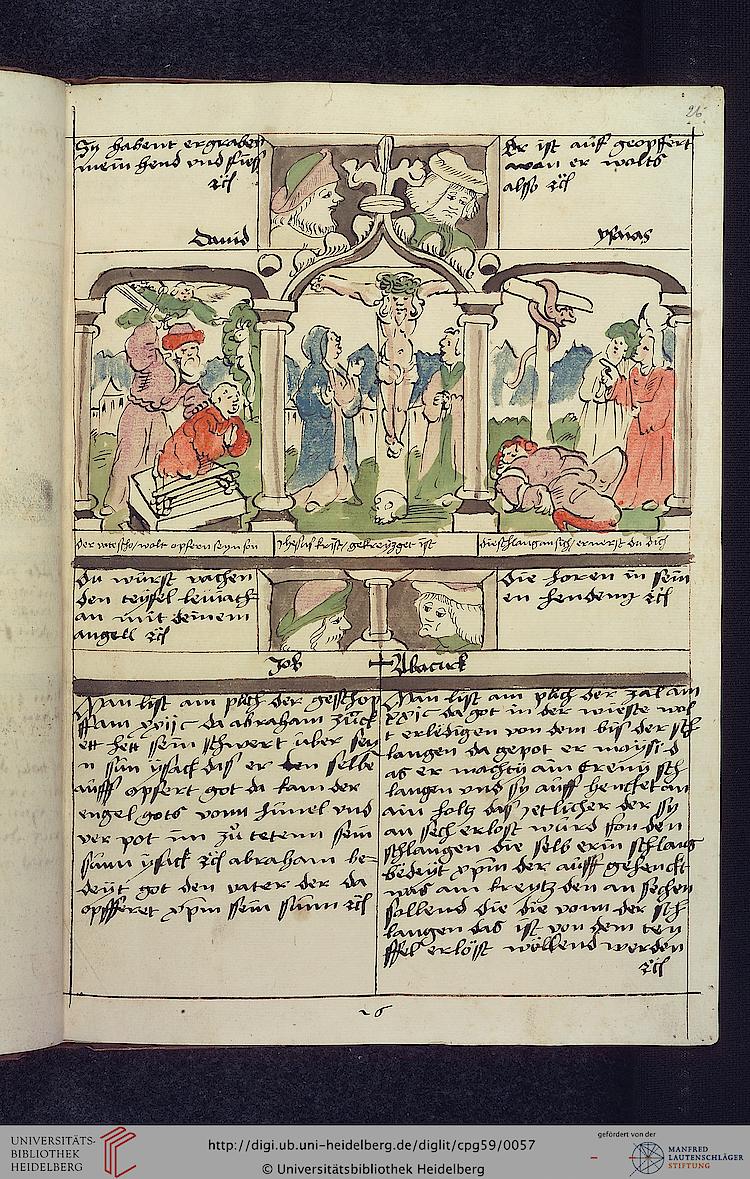 26
Sy habent ergraben
mein hend und fiess
rc̃
Dauid
Er ist auff geopffert
wan er wolts
also rc̃
ysaias
der vatter schos wolt opfern seyn son
Jhesus krist gekreyzget ist
die schlang an sich erwerst du dich
du würst vachen
den teyfel leviath
an mit deinem
angell rc̃
die horen in sein
en henden rc̃
Job
Abacuck
Man list am puch der geschop
ffam xxijc da abraham zuck
ett hett sein schwert über sey
n sun ysack das er den selbe
aufff opfert got da kam der
engel gots vonn himel vnd
ver pot im zu tetenn sein
sunn ysack rc̃ abraham be=
deyt got den vater der da
opffferet xpm sein sunn rc̃
Man list am puch der zal am
xxjc da got in der wieste wol
t erledigen von dem bis der sch
langen da gepot er moysi d
as er machen ain erenij sch
langen vnd sy auff hencket an
ain holtz das yetlicher der sy
an sech erlost wurd fon den
schlangen die selb erin schlang
bedeyt xpm der aufff gehenckt
was am kreytz den an sechen
sollend die die vonn der sch
langen das ist von dem tey
ffel erlöst wöllend werden
rc̃
26
UNIVERSITÄTS-
BIBLIOTHEK
HEIDELBERG
http://digi.ub.uni-heidelberg.de/diglit/cpg59/0057
© Universitätsbibliothek Heidelberg
gefördert von der
MANFRED
LAUTENSCHLÄGER
STIFTUNG